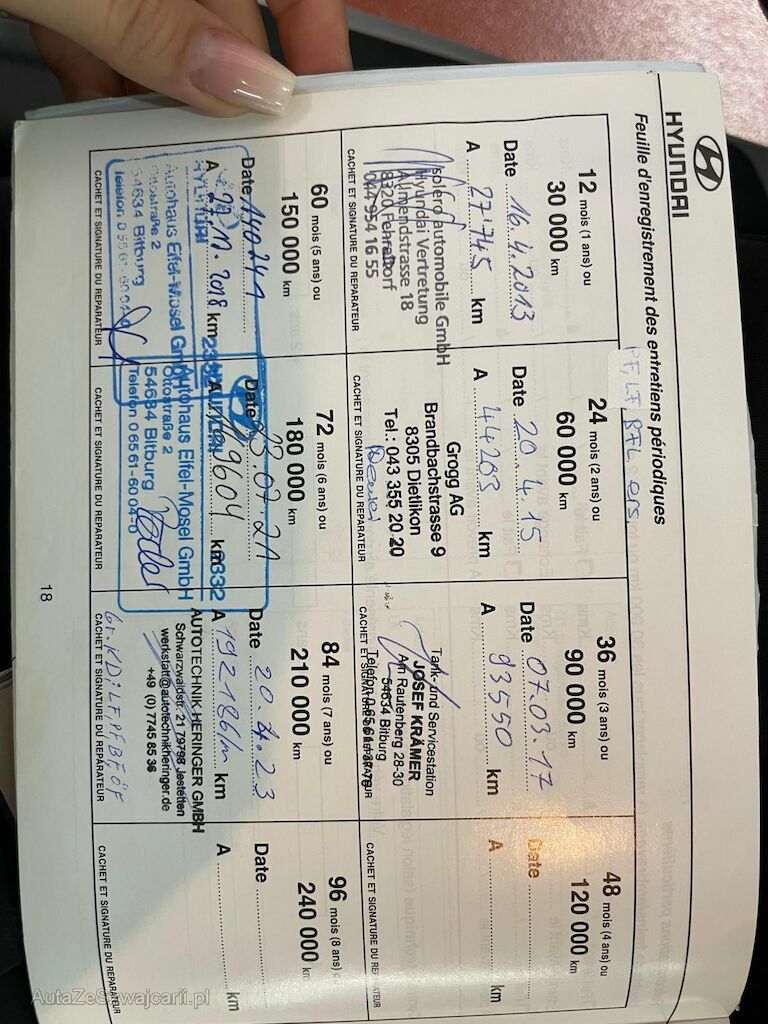 HYUNDAI
Feuille d'enregistrement des entretiens périodiques
12 mois (1 ans) ou
30 000 km
Date 16.4.2013
A 27'745 km
solero automobile GmbH
Hyundai Vertretung
Allmendstrasse 18
8320 Fehraltorf
044 954 16 55
CACHET ET SIGNATURE DU REPARATEUR
24 mois (2 ans) ou
60 000 km
Date 20.4.15
A 44203 km
Grogg AG
Brandbachstrasse 9
8305 Dietlikon
Tel.: 043 355 20 20
CACHET ET SIGNATURE DU REPARATEUR
36 mois (3 ans) ou
90 000 km
Date 07.03.17
A 93550 km
Tank- und Servicestation
JOSEF KRÄMER
Am Rautenberg 28-30
54634 Bitburg
CACHET ET SIGNATURE DU REPARATEUR
48 mois (4 ans) ou
120 000 km
Date
A km
CACHET ET SIGNATURE DU REPARATEUR
60 mois (5 ans) ou
150 000 km
Date
A 2018 km
HYUNDAI
Autohaus Eifel-Mosel GmbH
Ottostraße 2
54634 Bitburg
Telefon 0 65 61-60 04-0
CACHET ET SIGNATURE DU REPARATEUR
72 mois (6 ans) ou
180 000 km
Date 23.07.21
A km
Autohaus Eifel-Mosel GmbH
Ottostraße 2
54634 Bitburg
Telefon 0 65 61-60 04-0
CACHET ET SIGNATURE DU REPARATEUR
84 mois (7 ans) ou
210 000 km
Date 20.4.23
A 192186 km
AUTOTECHNIK HERINGER GMBH
Schwarzwaldstr. 21 79798 Jestetten
werkstatt@autotechnikheringer.de
+49 (0) 7745 85 36
CACHET ET SIGNATURE DU REPARATEUR
96 mois (8 ans)
240 000 km
Date
A km
CACHET ET SIGNATURE DU REPARATEUR
18
AutaZeSzwajcarii.pl